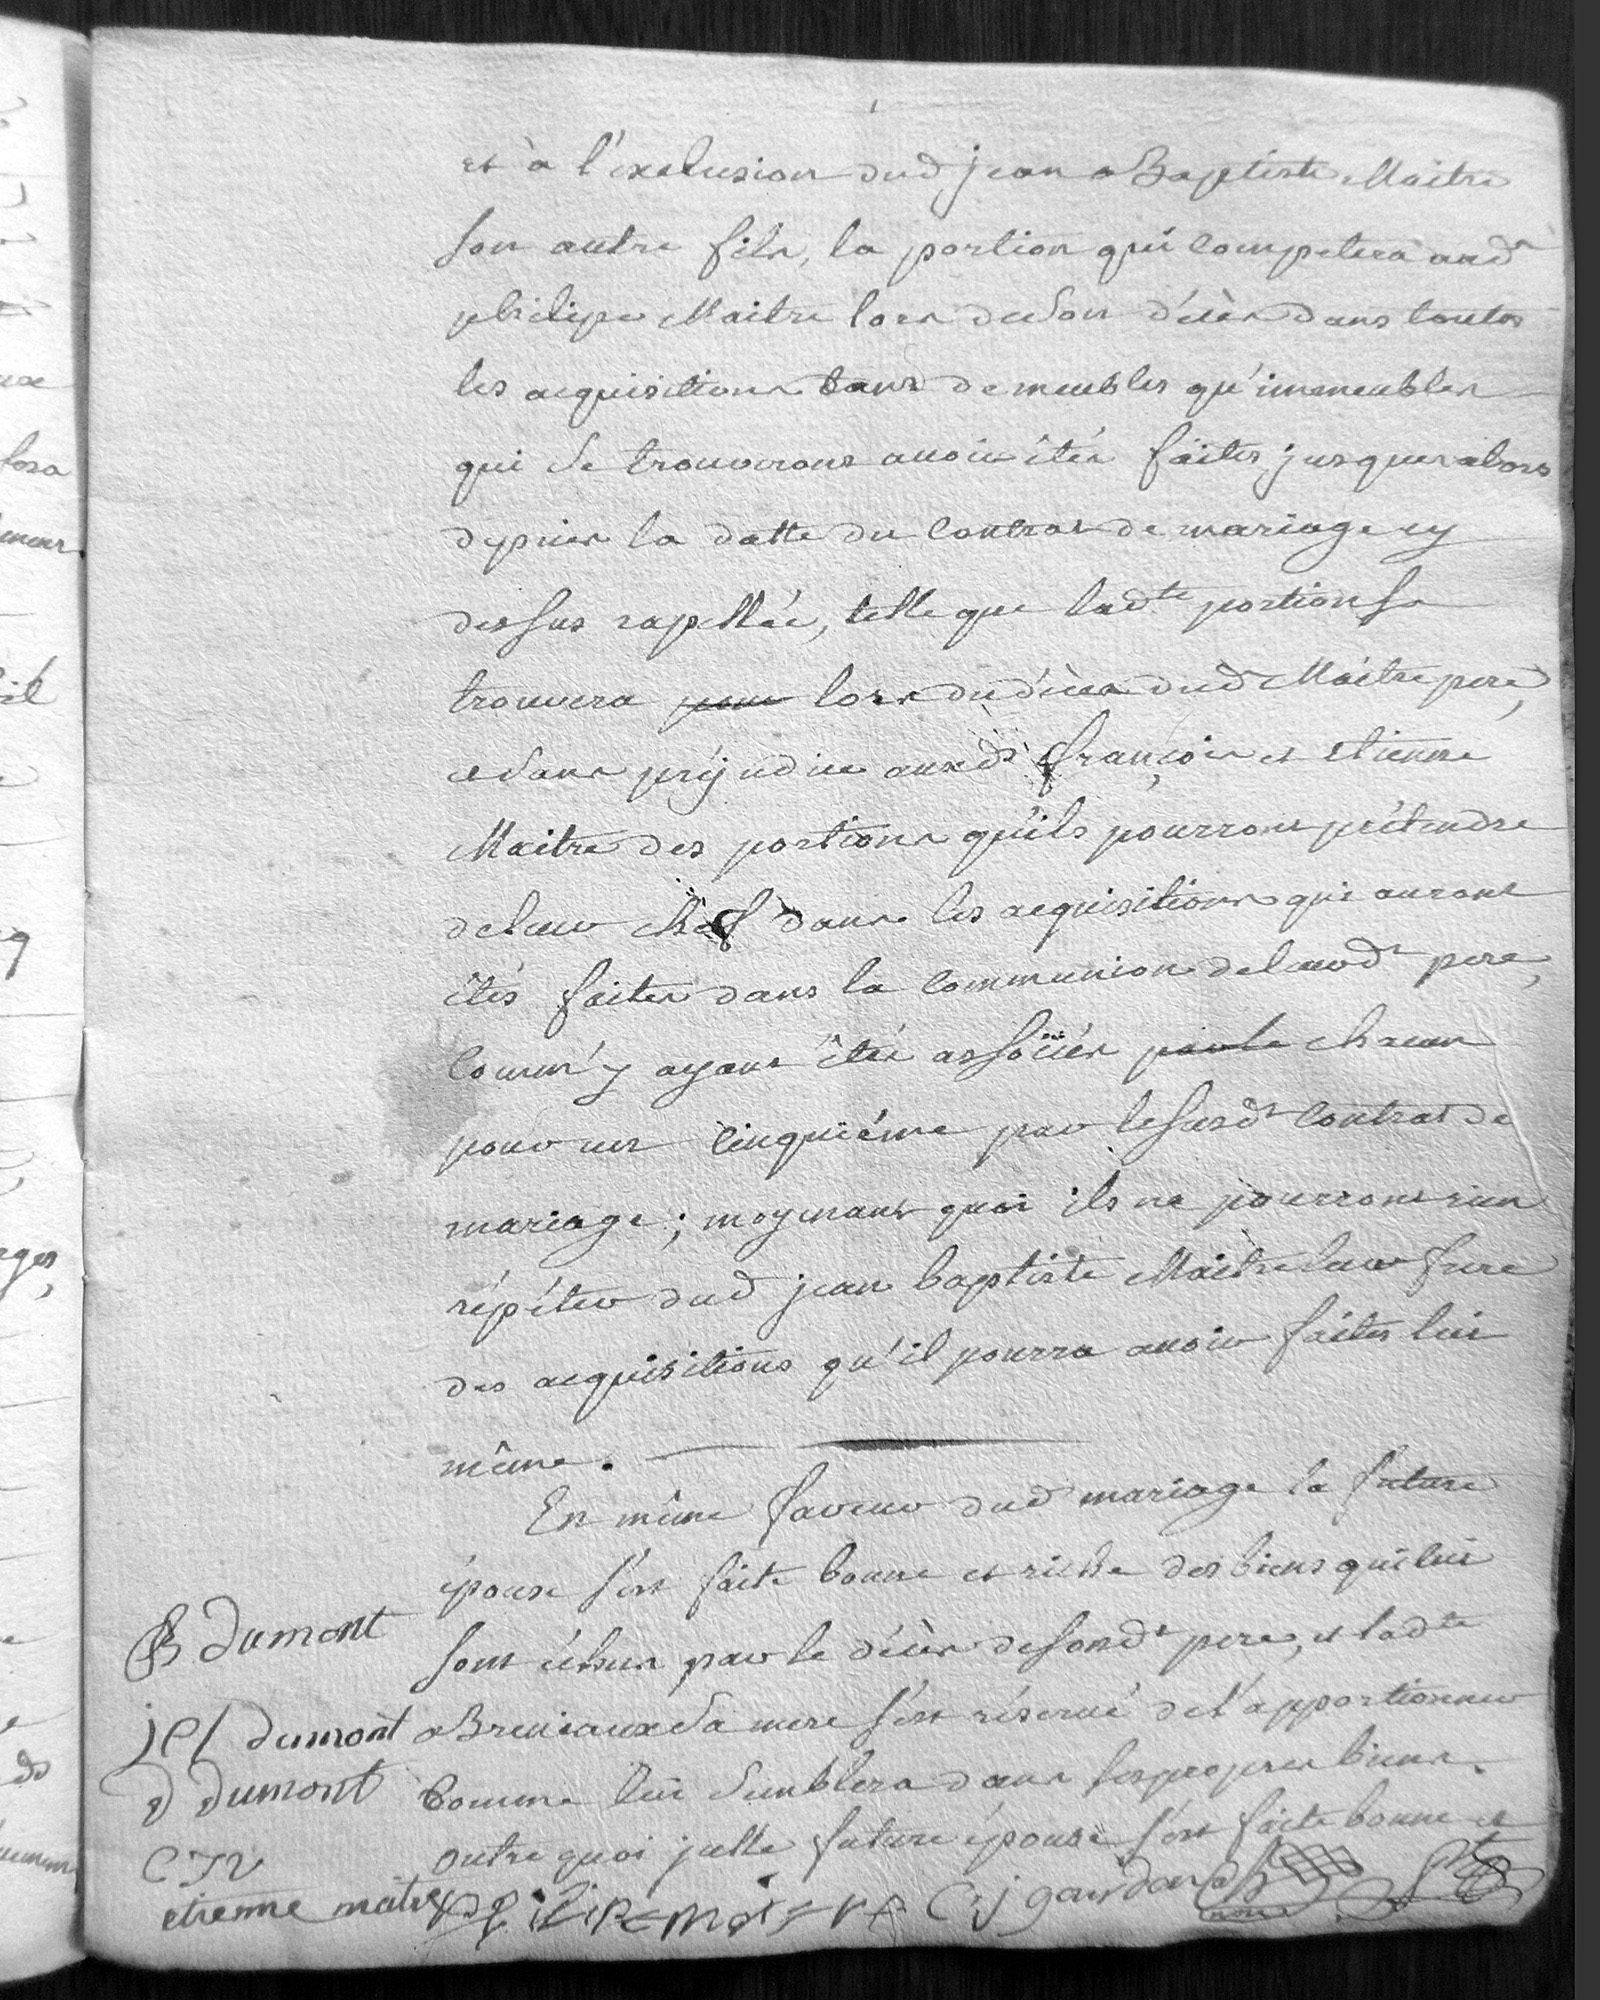 et à l'exclusion dud jean Baptiste Maitre
son autre fils, la portion qui competera aud.t
philipe Maitre lors de son décès dans toutes
les acquisitions tant de meubles qu'immeubles
qui se trouveront avoir étés faites jusques alors
depuis la datte du contrat de mariage cy
dessus rapellée, telle que lad.te portion se
trouvera pour lors du décès dud.t Maitre pere,
et sans préjudice auxd.s françois et etienne
Maitre des portions qu'ils pourront prétendre
de leur chef dans les acquisitions qui auront
étés faites dans la communion de leurd.t pere,
comm'y ayant étés associés par le chacun
pour un cinquiéme par le susd.t contrat de
mariage; moyenant quoi ils ne pourront rien
répéter dud jean baptiste Maitre leur frere
des acquisitions qu'il pourra avoir faites lui
même.
En même faveur dud mariage la future
épouse s'est faite bonne et riche des biens qui lui
sont échus par le décès de sond.t pere, et lad.te
Breniaux sa mere s'est réservé de l'apportionner
comme lui semblera dans ses propres biens.
outre quoi jcelle future épouse s'est faite bonne et
dumont
dumont
D dumont
etienne maitre philipe maitre C j gaindar